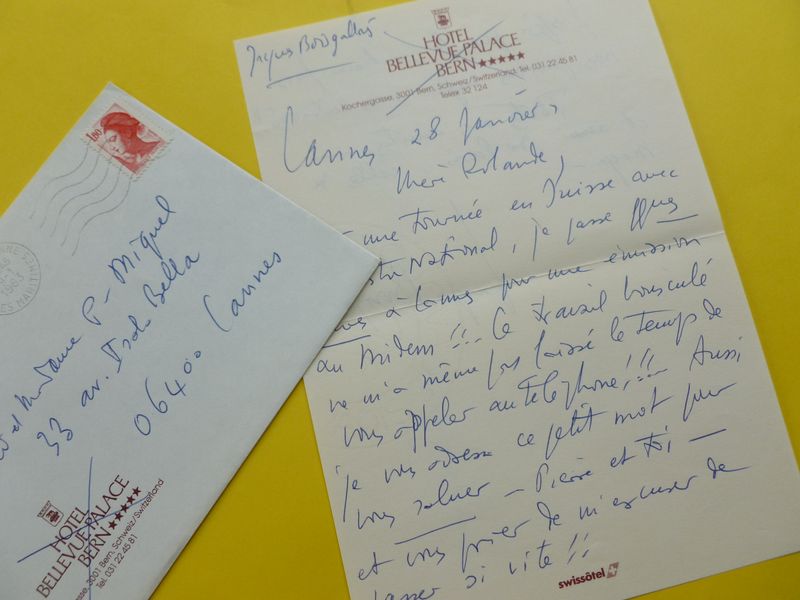 Jacques Bourgallais
HOTEL
BELLEVUE PALACE
BERN ★★★★★
Kochergasse, 3001 Bern, Schweiz/Switzerland, Tel. 031 22 45 81
Telex 32 124
Cannes 28 Janvier,
Chère Rolande,
une Tournée en Suisse avec
National, je passe ques
à Cannes pour une émission
au Midem !!! Ce travail bousculé
ne m'a même pas laissé le temps de
vous appeler au téléphone !!! Aussi
je vous adresse ce petit mot pour
vous saluer — Pierre et Toi —
et vous prier de m'excuser de
passer si vite !!
swissôtel
1,80
et Madame P. Miquel
33 av. Isola Bella
06400 Cannes
HOTEL
BELLEVUE PALACE
BERN ★★★★★
3001 Bern, Schweiz/Switzerland
Tel. 031 22 45 81